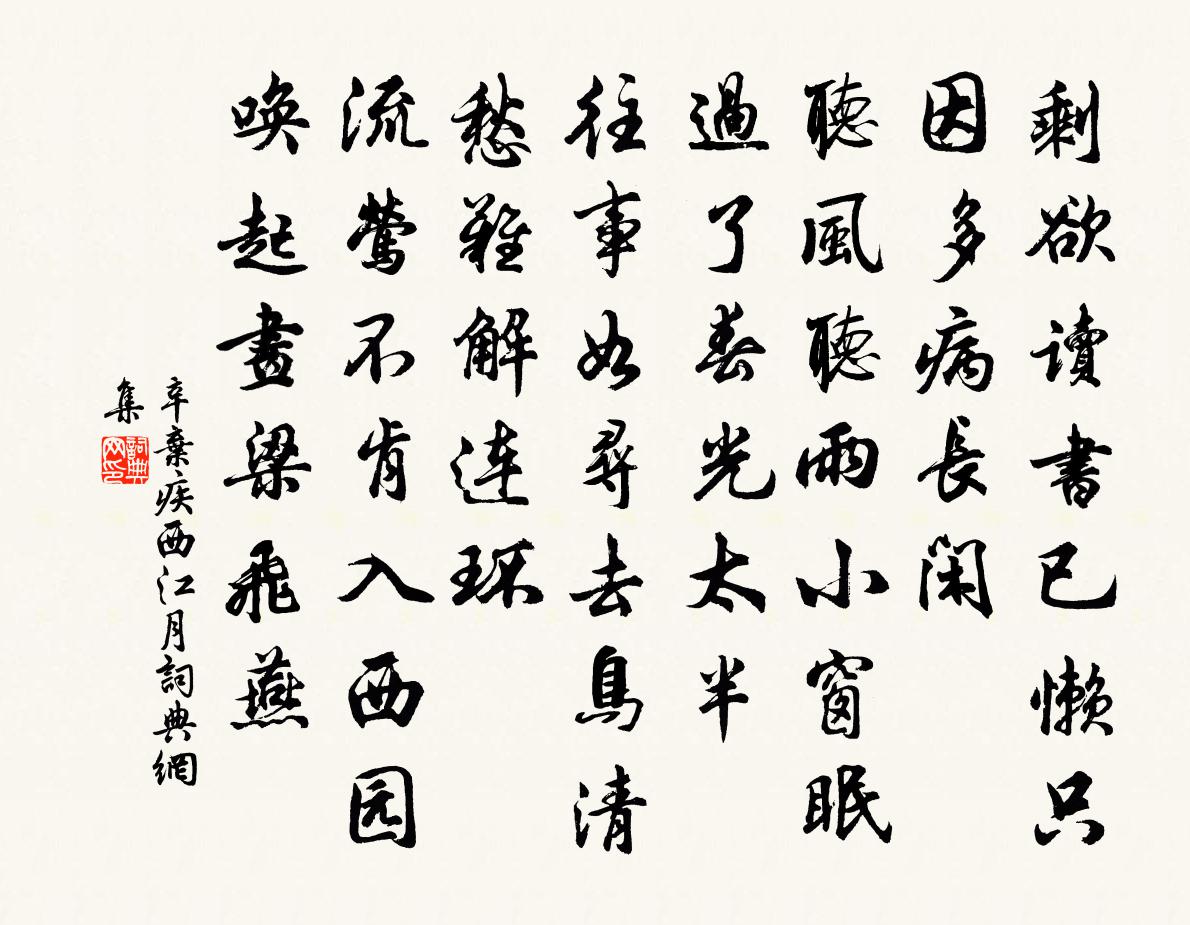 剩欲讀書已懶只
因多病長閑
聽風聽雨小窗眠
過了春光太半
往事如尋去鳥清
愁難解連環
流鶯不肯入西园
喚起畫梁飛燕
辛棄疾西江月詞典網
集
詞典網印